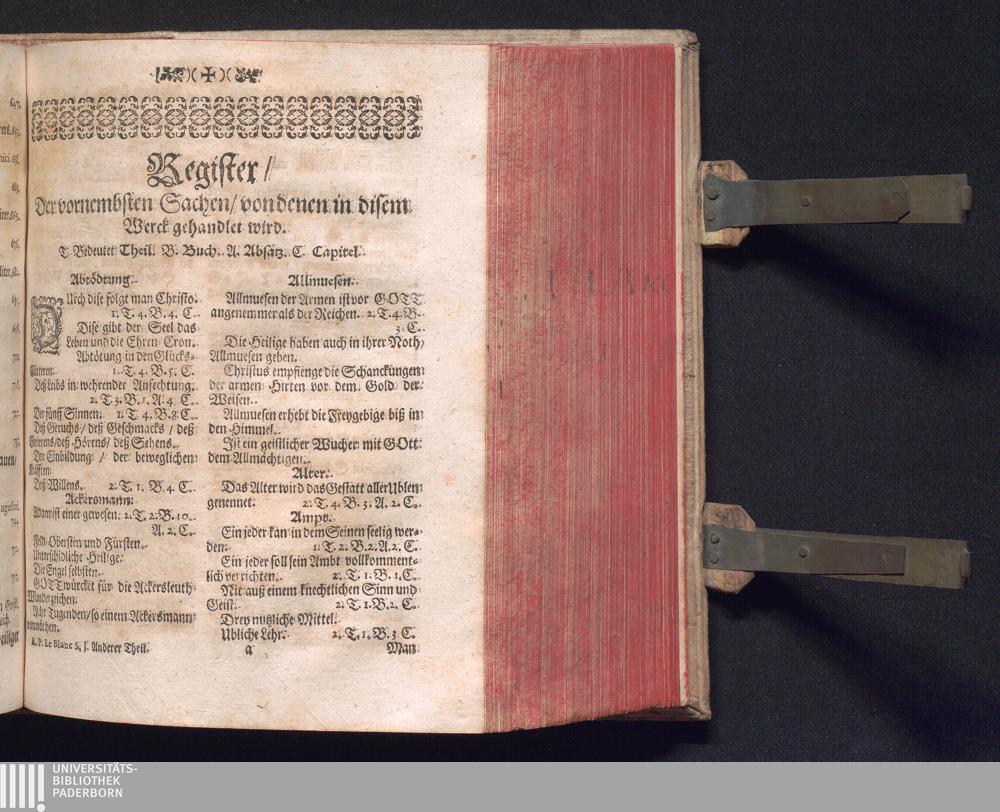 Register/
Der vornembsten Sachen/ von denen in disem
Werck gehandlet wird.
T. Bedeutet Theil. B. Buch. A. Absätz. C. Capitel.
Abtödtung.
Durch dise folgt man Christo.
1. T. 4. B. 4. C.
Dise gibt der Seel das
Leben und die Ehren-Cron.
Abtötung in den Glücks-
Gütteren. 1. T. 4. B. 5. C.
Deß Leibs in wehrender Anfechtung.
2. T. 3. B. 1. A. 4. C.
Der fünff Sinnen. 1. T. 4. B. 8. C.
Deß Geruchs/ deß Geschmacks/ deß
deß Hörens/ deß Sehens.
Der Einbildung/ der beweglichen
Kräfften.
Deß Willens. 2. T. 1. B. 4. C.
Ackersmann.
einer gewesen. 2. T. 2. B. 10.
A. 2. C.
Feld-Obersten und Fürsten.
Unterschidliche Heilige.
Die Engel selbsten.
GOTT würcket für die Ackersleuth
Wunderzeichen.
Acht Tugenden/ so einem Ackersmann
vonnöthen.
R. P. Le Blanc S. J. Anderer Theil.
Allmuesen.
Allmuesen der Armen ist vor GOTT
angenemmer als der Reichen. 2. T. 4. B.
3. C.
Die Heilige haben auch in ihrer Noth
Allmuesen geben.
Christus empfienge die Schanckungen
der armen Hirten vor dem Gold der
Weisen.
Allmuesen erhebt die Freygebige biß in
den Himmel.
Ist ein geistlicher Wucher mit GOtt
dem Allmächtigen.
Alter.
Das Alter wird das Gestatt aller Üblen
genennet. 2. T. 4. B. 3. A. 2. C.
Ampt.
Ein jeder kan in dem Seinen seelig wer-
den. 1. T. 2. B. 2. A. 2. C.
Ein jeder soll sein Ambt vollkomment-
lich verrichten. 2. T. 1. B. 1. C.
Nit auß einem knechtlichen Sinn und
Geist. 2. T. 1. B. 2. C.
Drey nutzliche Mittel.
Übliche Lehr. 2. T. 1. B. 3 C.
a Man
UNIVERSITÄTS-
BIBLIOTHEK
PADERBORN